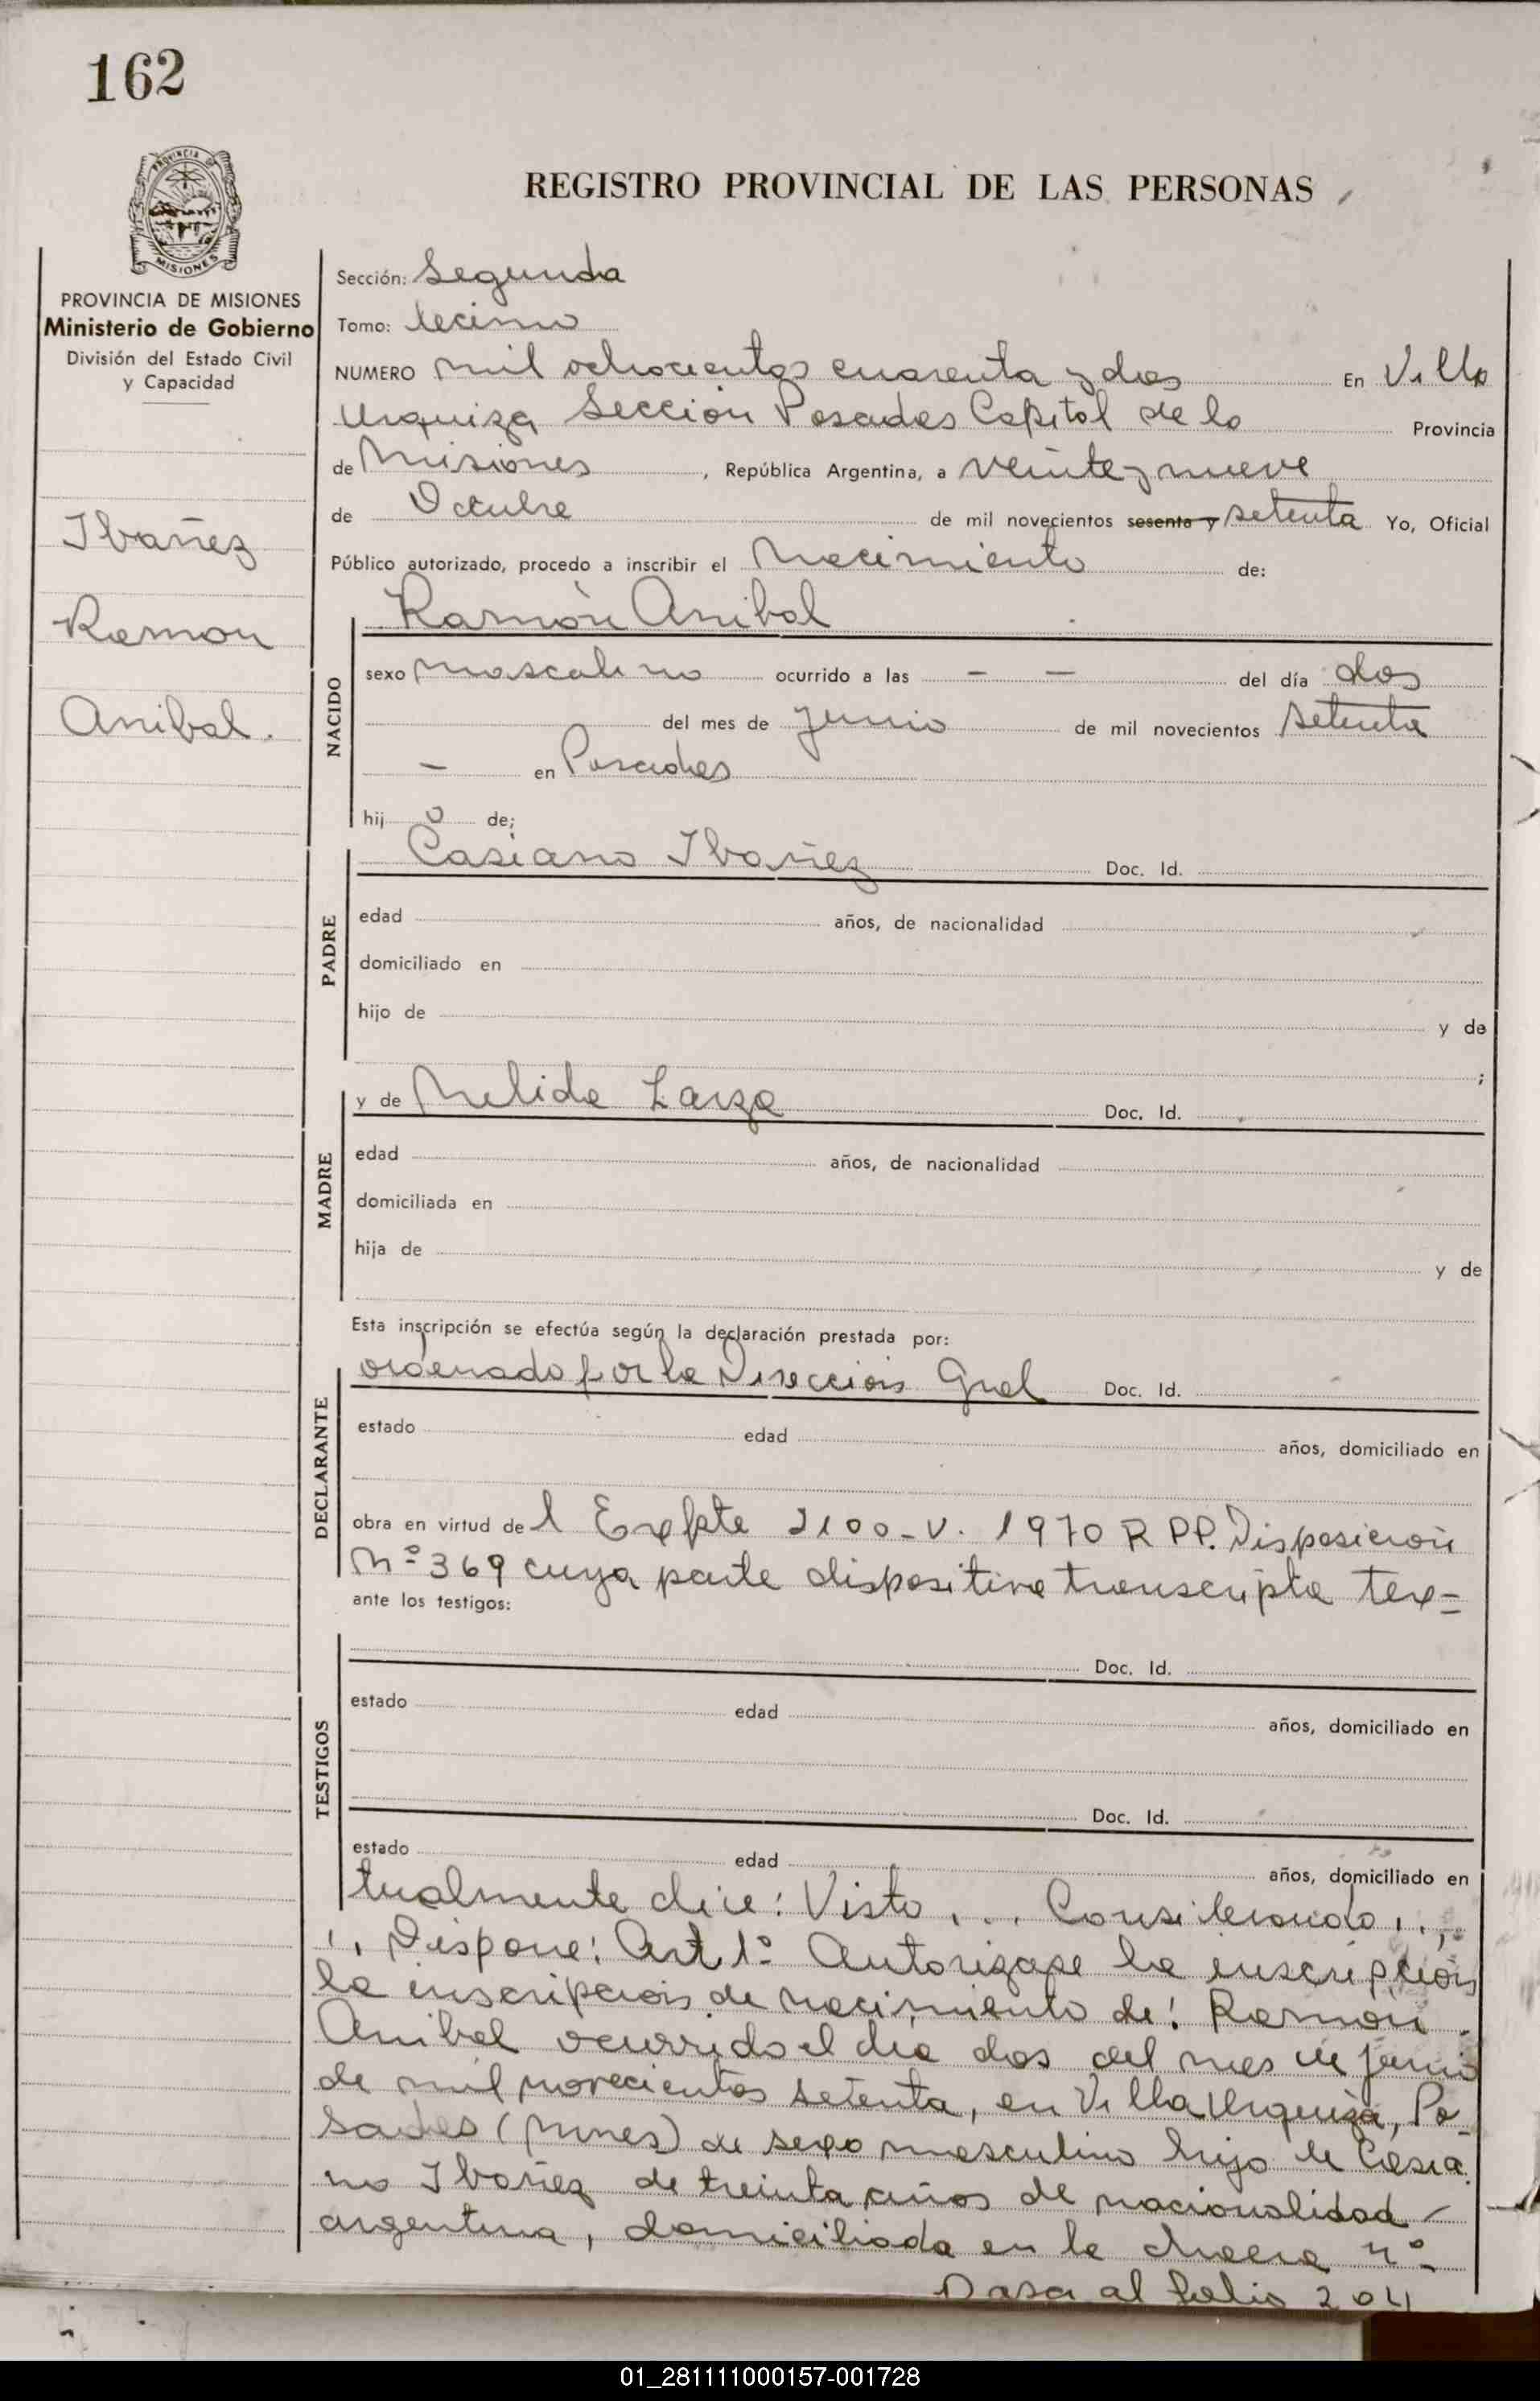 162
PROVINCIA DE MISIONES
REGISTRO PROVINCIAL DE LAS PERSONAS
PROVINCIA DE MISIONES
Ministerio de Gobierno
División del Estado Civil
y Capacidad
Ibañez
Ramon
Anibal.
Sección: Segunda
Tomo: Decimo
NUMERO mil ochocientos cuarenta y dos En Villa
Urquiza Sección Posadas Capital de la Provincia
de Misiones, República Argentina, a veinte y nueve
de Octubre de mil novecientos sesenta y setenta Yo, Oficial
Público autorizado, procedo a inscribir el Nacimiento de:
NACIDO
Ramón Anibal
sexo masculino ocurrido a las — — del día dos
del mes de Junio de mil novecientos setenta
— en Posadas
hij o de;
PADRE
Casiano Ibañez Doc. Id.
edad años, de nacionalidad
domiciliado en
hijo de y de
;
MADRE
y de Nelida Larza Doc. Id.
edad años, de nacionalidad
domiciliada en
hija de y de
Esta inscripción se efectúa según la declaración prestada por:
DECLARANTE
ordenado por la Dirección Gral Doc. Id.
estado edad años, domiciliado en
obra en virtud de l Expte 2100-V. 1970 R PP. Disposición
Nº 369 cuya parte dispositiva transcripta tex=
ante los testigos:
TESTIGOS
Doc. Id.
estado edad años, domiciliado en
Doc. Id.
estado edad años, domiciliado en
tualmente dice: Visto ... Considerando ...
Dispone: Art 1º Autorizase la inscripción
la inscripción de nacimiento de: Ramón
Anibal ocurrido el día dos del mes de junio
de mil novecientos setenta, en Villa Urquiza, Po-
sadas (Mnes) de sexo masculino hijo de Casia
no Ibañez de treinta años de nacionalidad
argentina, domiciliada en la chacra nº
Pasa al folio 204
01_281111000157-001728